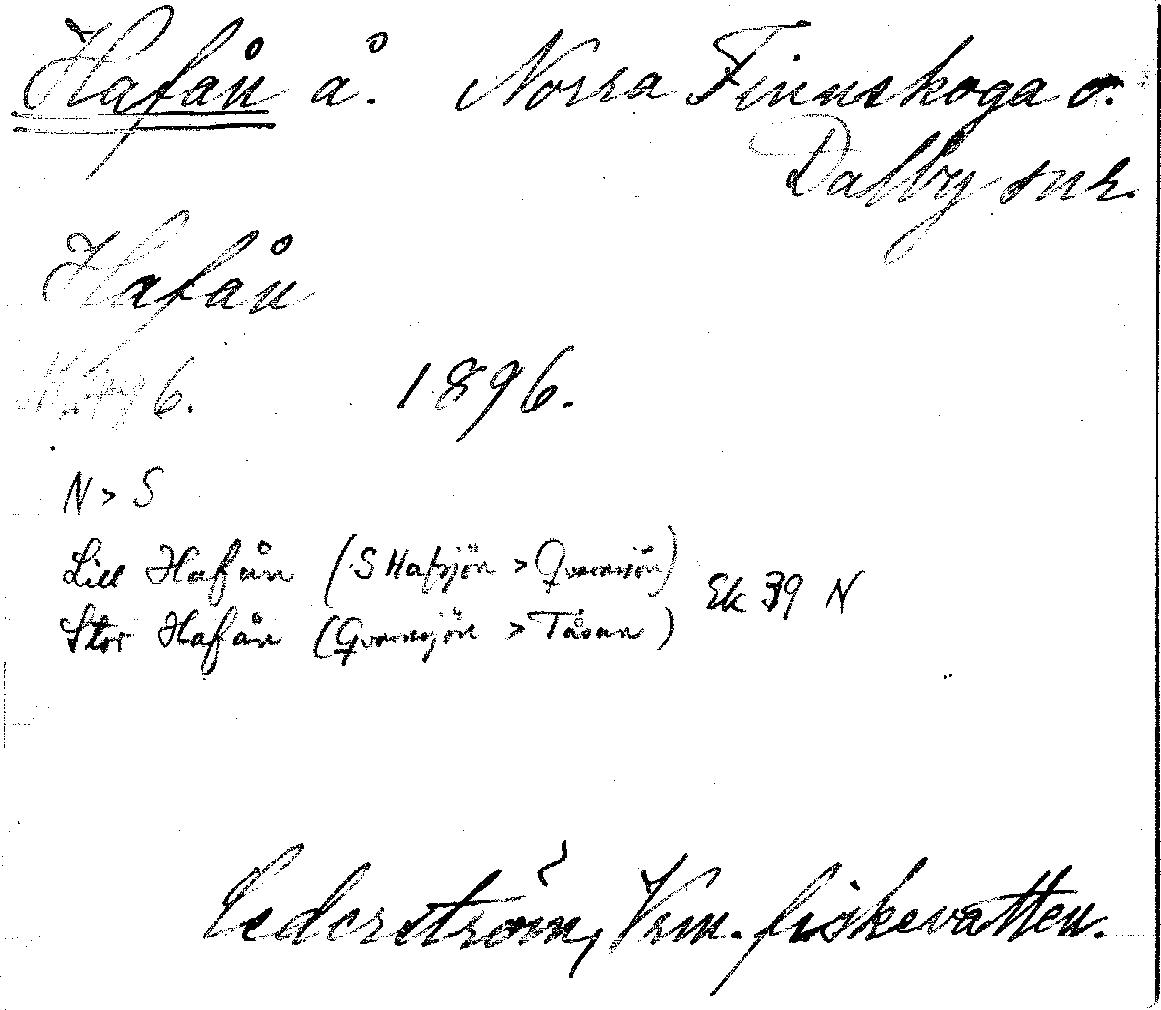 Hafån å. Norra Finnskoga o.
Dalby snr.
Hafån
6. 1896.
N > S
Lill Hafån (S Hafsjön > Qvarnsjön)
Stor Hafån (Qvarnsjön > Tåsan) Ek 39 N
Cederström, Vrm. fiskevatten.